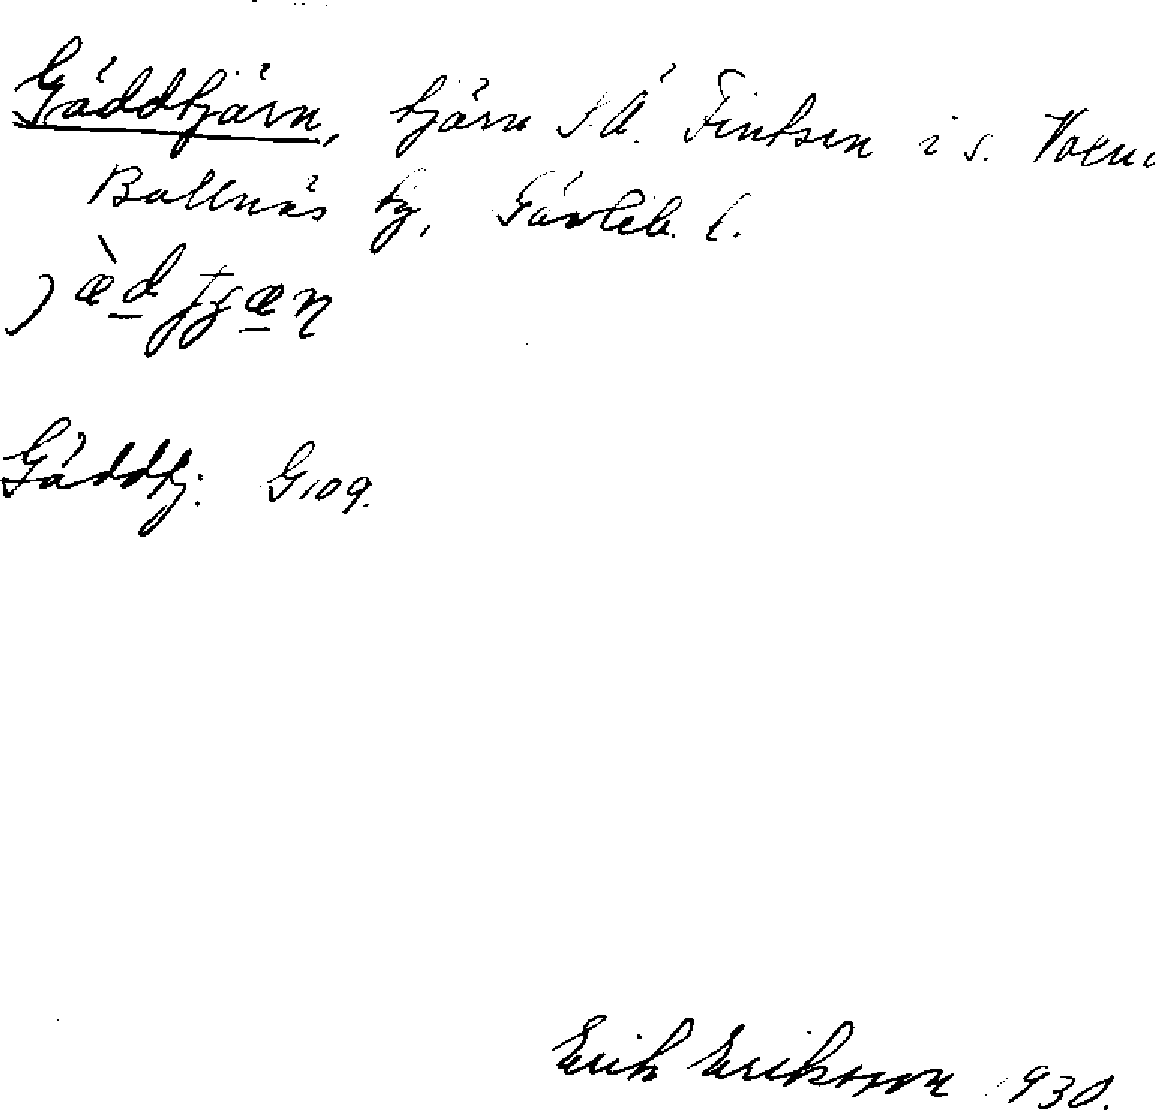 Gäddtjärn, tjärn S.Ö. Finksen i s. Voxna
Bollnäs tg, Gävleb. l.
jæ̀dtjæɳ
Gäddtj: G109.
Erik Eriksson 1930.